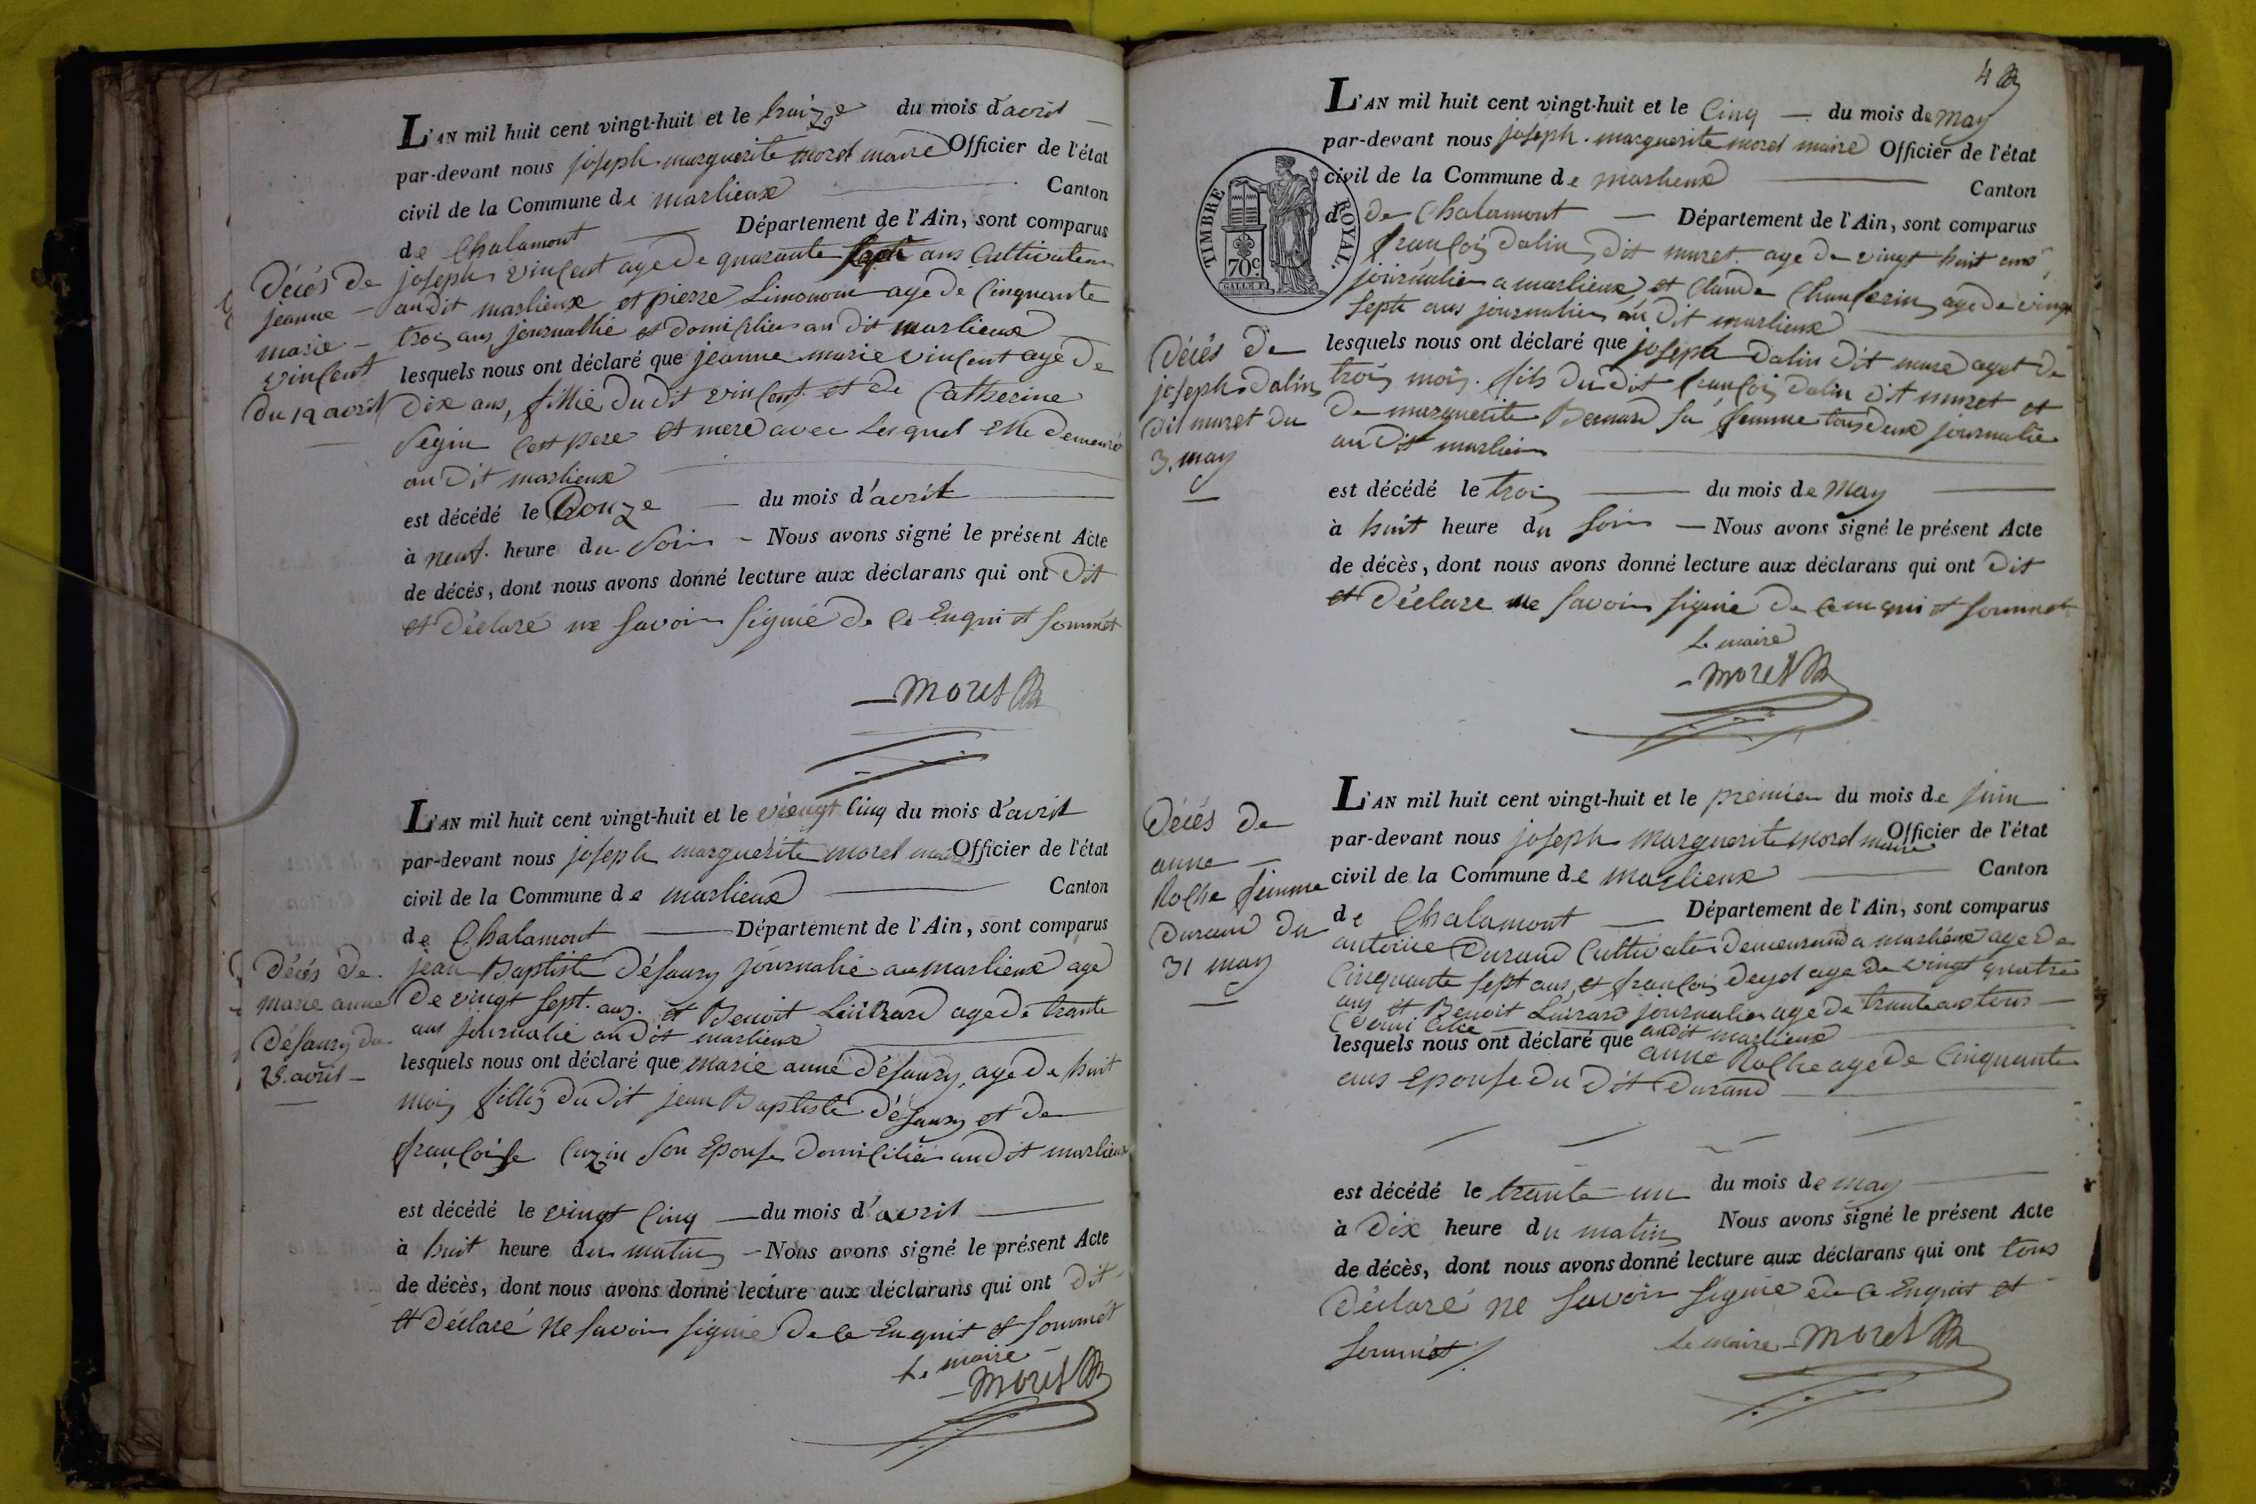 L'AN mil huit cent vingt-huit et le treize du mois d'avril
par-devant nous joseph marguerite morel maire Officier de l'état
civil de la Commune de marlieux Canton
de Chalamont Département de l'Ain, sont comparus
joseph vincent age de quarante sept ans Cultivateur
au dit marlieux et pierre Limonom age de Cinquante
trois ans journallié et domicilier au dit marlieux
lesquels nous ont déclaré que jeanne marie vincent age de
dix ans, fillie du dit vincent et de Catherine
Segin cest pere et mere avec lesquel Elle demeure
au dit marlieux
est décédé le Douze du mois d'avril
à neuf heure du Soir - Nous avons signé le présent Acte
de décès, dont nous avons donné lecture aux déclarans qui ont dit
et déclaré ne savoir signié de ce Enqui et sommét
morel
Décés de
jeanne
marie
vincent
du 12 avril
L'AN mil huit cent vingt-huit et le viengt Cinq du mois d'avril
par-devant nous joseph marguerite morel maire Officier de l'état
civil de la Commune de marlieux Canton
de Chalamont Département de l'Ain, sont comparus
jean Baptiste désaury journalié au marlieux age
de vingt sept ans et Benoit Luirard age de trante
ans journalié au dit marlieux
lesquels nous ont déclaré que marie anne désaury age de huit
mois fillis du dit jean Baptiste désaury et de
françoise Cuzin Son Epouse Domicilier au dit marlieux
est décédé le vingt Cinq du mois d'avril
à huit heure du matin - Nous avons signé le présent Acte
de décès, dont nous avons donné lecture aux déclarans qui ont dit
et déclaré ne savoir signié de ce Enquit et sommét
Le maire
morel
Décés de
marie anne
désaury du
25 avril
4
TIMBRE ROYAL.
70c
L'AN mil huit cent vingt-huit et le Cinq du mois de may
par-devant nous joseph marguerite morel maire Officier de l'état
civil de la Commune de marlieux Canton
d de Chalamont Département de l'Ain, sont comparus
françois dalin dit muret age de vingt huit ans
journalier a marlieux et Claude age de vingt
septe ans journalier au dit marlieux
lesquels nous ont déclaré que joseph dalin dit mure aget de
trois mois fils du dit françois dalin dit muret et
de marguerite Bernard sa femme tous deux journalie
au dit marlieu
est décédé le trois du mois de May
à huit heure du soir - Nous avons signé le présent Acte
de décès, dont nous avons donné lecture aux déclarans qui ont dit
et déclare ne savoir signié de ce enqui et sommet
Le maire
morel
Décés de
joseph dalin
dit muret du
3 may
L'AN mil huit cent vingt-huit et le premier du mois de juin
par-devant nous joseph marguerite morel maire Officier de l'état
civil de la Commune de Marlieux Canton
de Chalamont Département de l'Ain, sont comparus
antoine Durand Cultivater demeurand a marlieux age de
Cinquante sept ans, et françois deyol age de vingt quatre
ans et Benoit Luirard journalier age de trante ans tous
Domicilie au dit marlieux
lesquels nous ont déclaré que anne Rolhe age de Cinquante
ans Epouse du dit Durand
est décédé le trante un du mois de may
à Dix heure du matin Nous avons signé le présent Acte
de décès, dont nous avons donné lecture aux déclarans qui ont tous
déclaré ne savoir signié de ce Enquit et
sommét
Le maire morel
Décés de
anne
Rolhe femme
Durand du
31 may